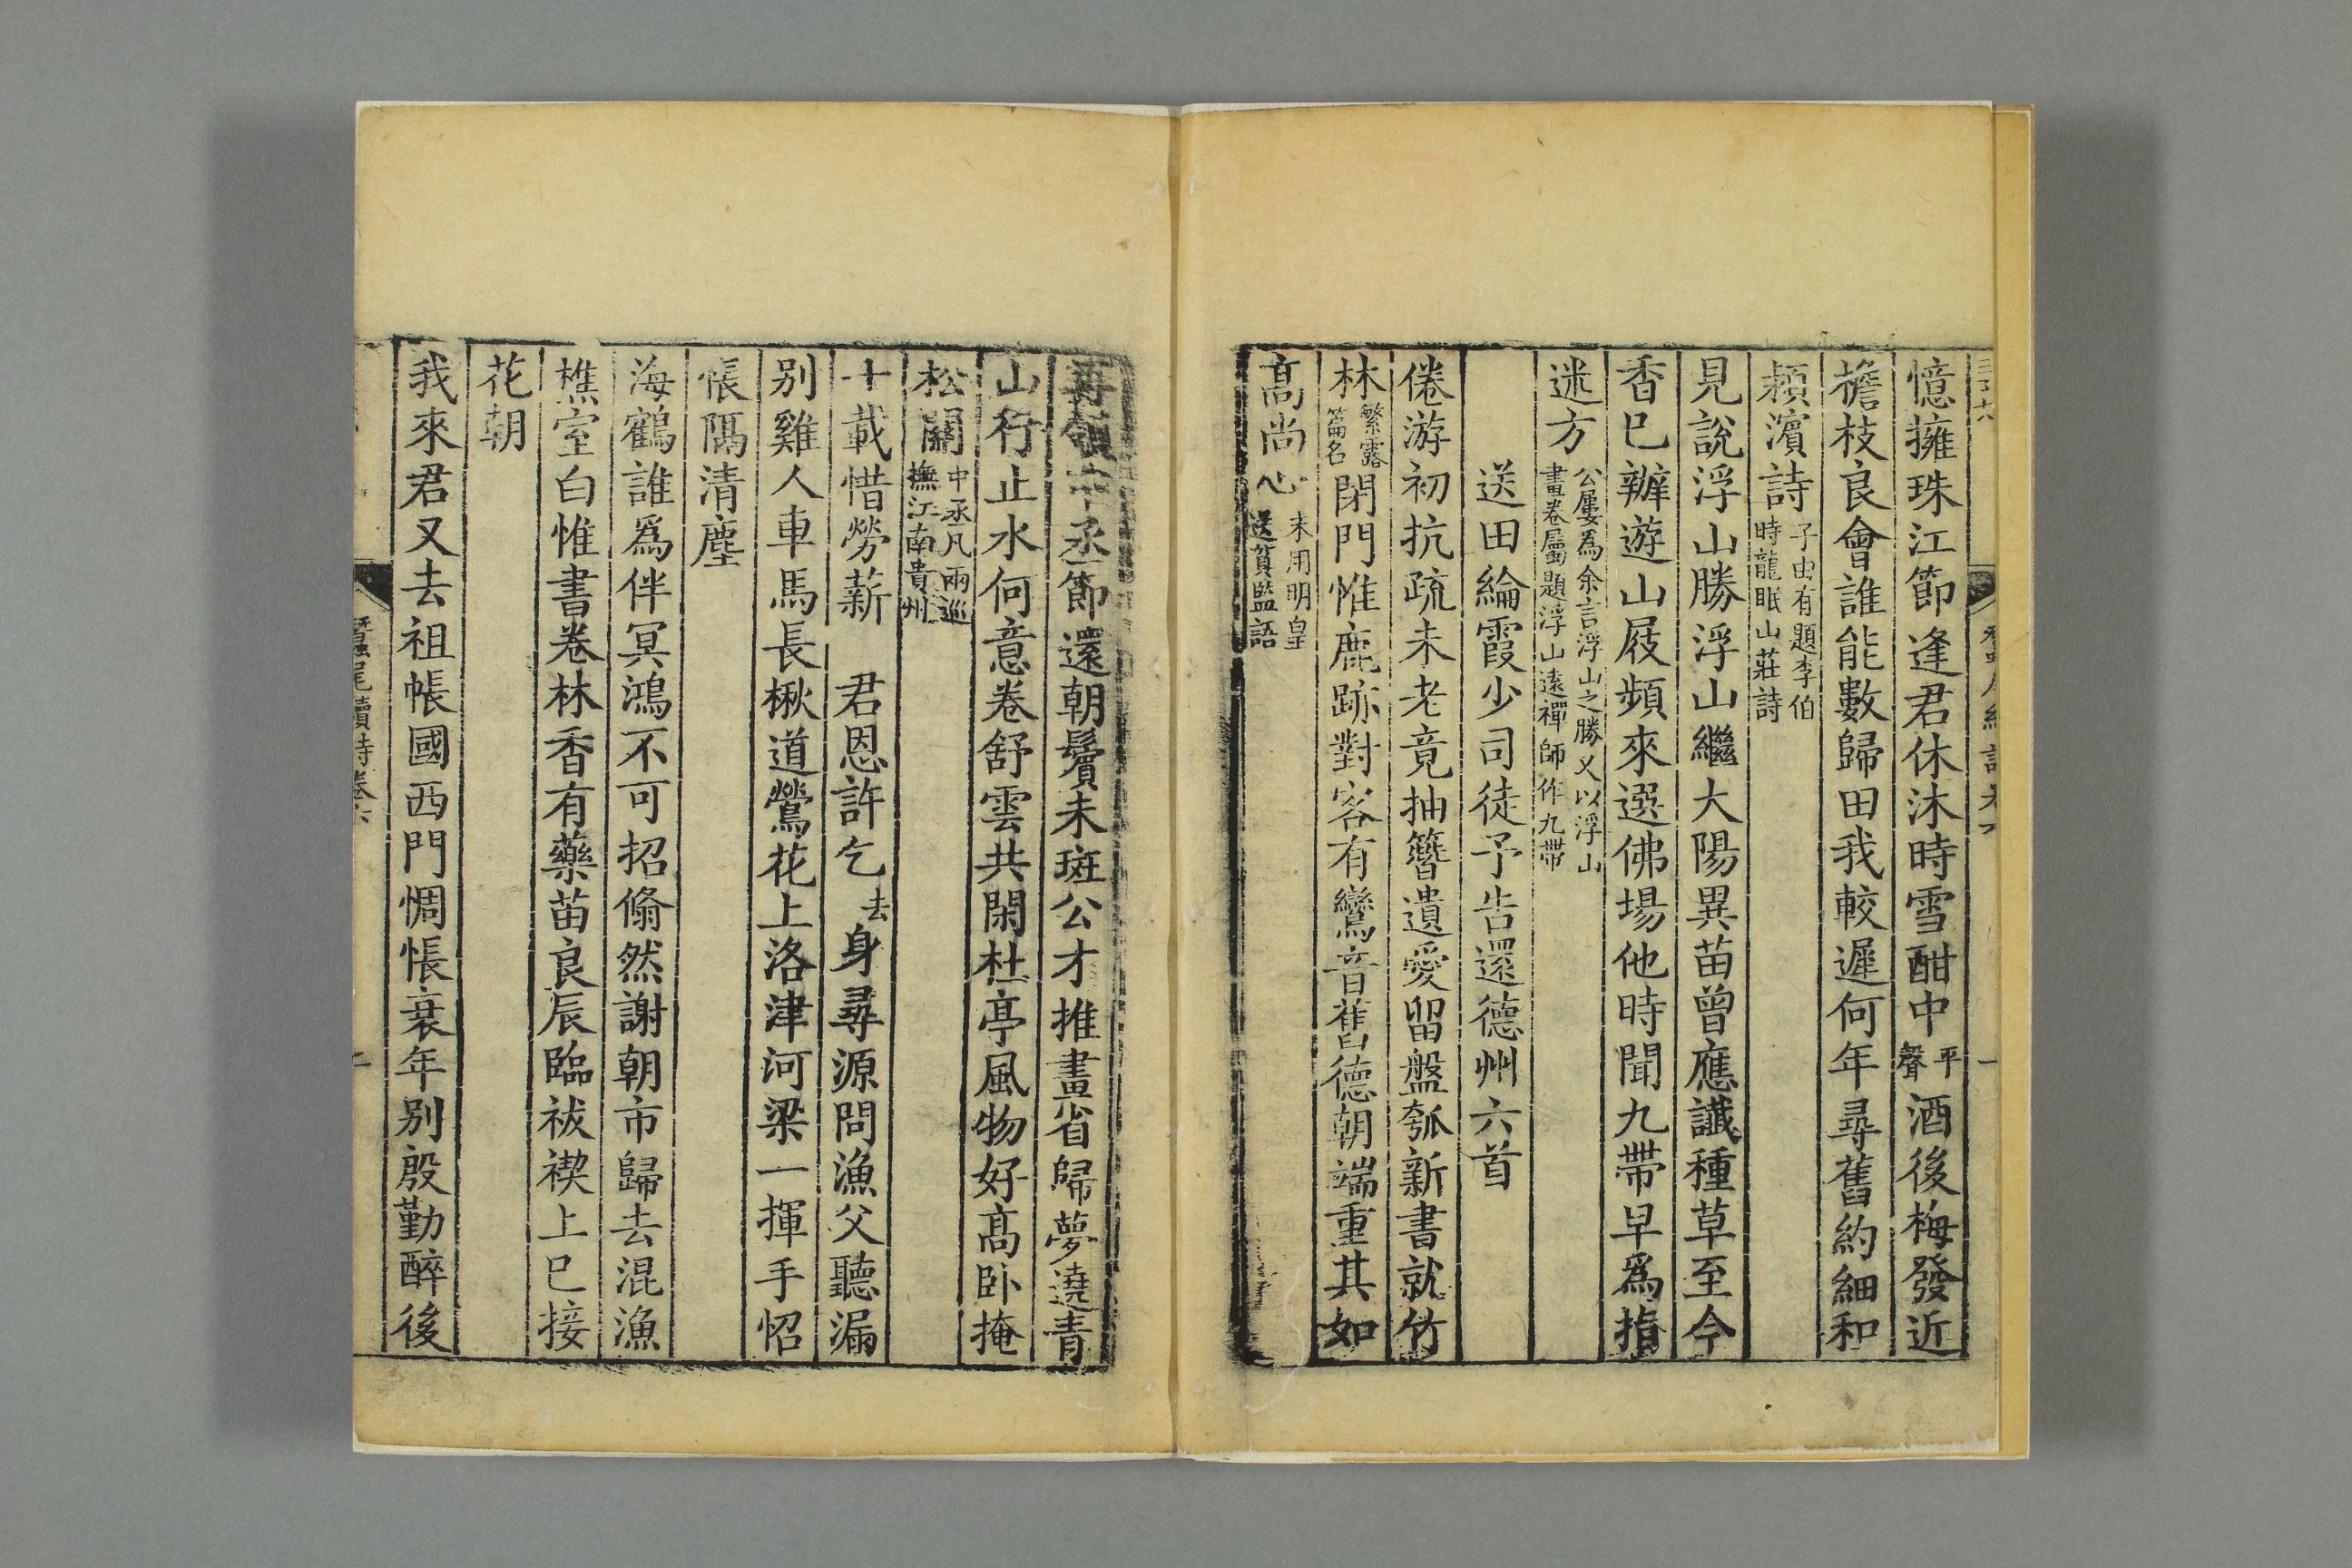 憶擁珠江節逢君休沐時雪酣中平聲酒後梅發近
檐枝良會誰能數歸田我較遲何年尋舊約細和
潁濵詩子由有題李伯時龍眠山莊詩
見說浮山勝浮山繼大陽異苗曾應讖種草至今
香已辦遊山屐頻來選佛場他時聞九帶早爲指
迷方公屢為余言浮山之勝又以浮山畫卷屬題浮山遠禪師作九帶
送田綸霞少司徒予告還德州六首
倦游初抗疏未老竟抽簪遺愛留盤瓠新書就竹
林繁露篇名閉門惟鹿跡對客有鸞音舊德朝端重其如
髙尚心末用明皇送賀監語
再領中丞節還朝鬢未斑公才推畫省歸夢遶青
山行止水何意卷舒雲共閑杜亭風物好髙卧掩
松關中丞凡兩巡撫江南貴州
十載惜勞薪 君恩許乞去身尋源問漁父聽漏
别雞人車馬長楸道鶯花上洛津河梁一揮手怊
悵隔清塵
海鶴誰爲伴冥鴻不可招翛然謝朝市歸去混漁
樵室白惟書卷林香有藥苗良辰臨祓禊上巳接
花朝
我來君又去祖帳國西門惆悵衰年别殷勤醉後
蠶尾續詩卷六